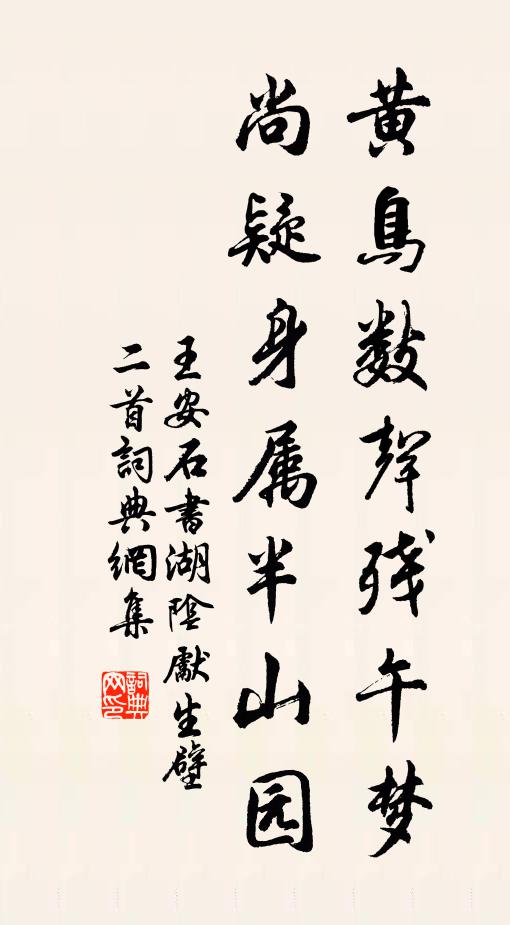 黄鳥数聲残午梦
尚疑身属半山园
王安石書湖陰獻生壁
二首詞典網集
詞典网印